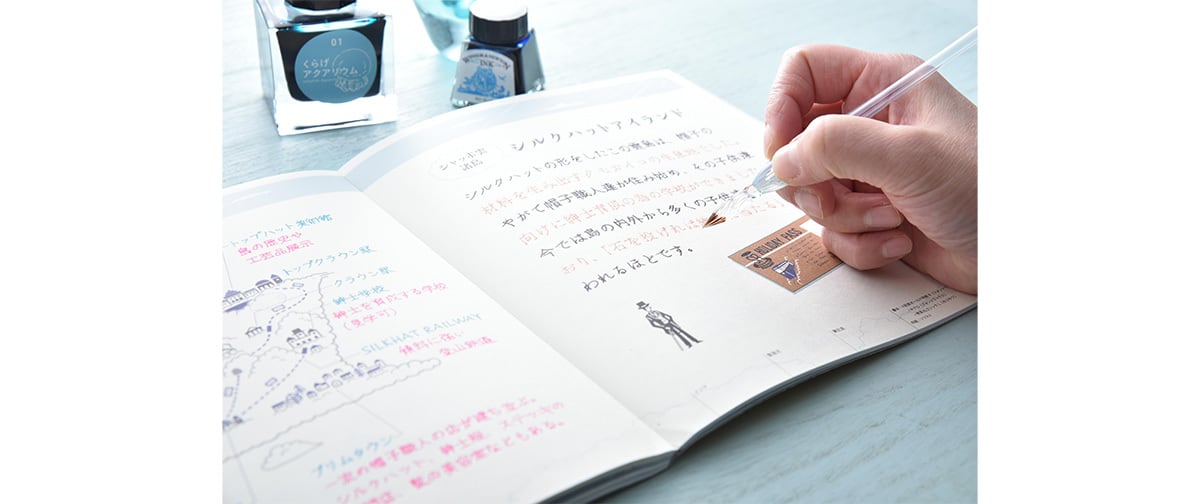 01
くらげ
アクアリウム
INK
シャッポ雲
諸島
シルクハットアイランド
シルクハットの形をしたこの群島は、帽子の
材料を生み出すクモカイコの生産地でした
やがて帽子職人達が住み始め、その子供達
向けに紳士育成の為の学校ができました
今では島の内外から多くの子供
おり、「石を投げれば 当たる」
われるほどです。
HOLIDAY PASS
トップハット美術館
島の歴史や
工芸品展示
トップクラウン駅
クラウン駅
紳士学校
紳士を育成する学校
(見学可)
SILKHAT RAILWAY
傾斜に強い
登山鉄道
プリムタウン
一流の帽子職人の店が建ち並ぶ。
シルクハット、紳士服、ステッキの
店、髭の美容室などもある。